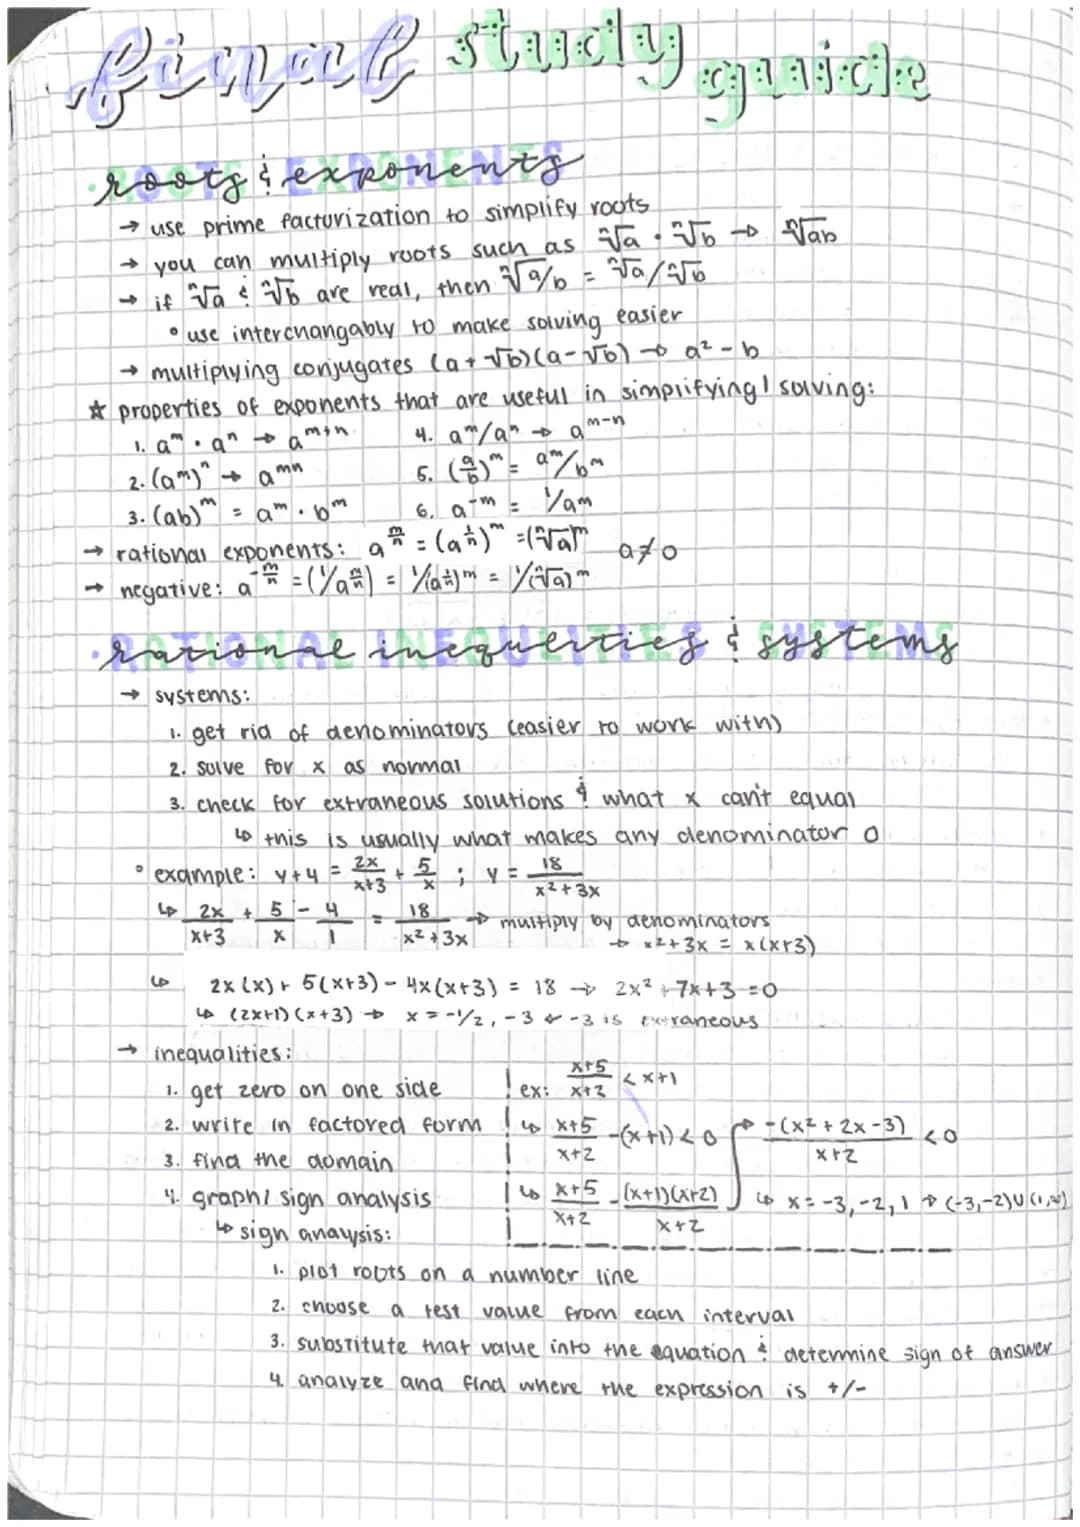 final study guide
·roots & exponents
→ use prime factorization to simplify roots
→ you can multiply roots such as ⁿ√a · ⁿ√b → ⁿ√ab
→ if ⁿ√a & ⁿ√b are real, then ⁿ√a/b = ⁿ√a/ⁿ√b
° use interchangably to make solving easier
→ multiplying conjugates (a+√b)(a-√b) → a² - b
☆ properties of exponents that are useful in simplifying/solving:
1. aᵐ · aⁿ → aᵐ⁺ⁿ 4. aᵐ/aⁿ → aᵐ⁻ⁿ
2. (aᵐ)ⁿ → aᵐⁿ 5. (a/b)ᵐ = aᵐ/bᵐ
3. (ab)ᵐ = aᵐ · bᵐ 6. a⁻ᵐ = 1/aᵐ
→ rational exponents: a^(m/n) = (a^(1/n))ᵐ = (ⁿ√a)ᵐ a≠0
→ negative: a^(-m/n) = (1/a^(m/n)) = 1/(a^(1/n))ᵐ = 1/(ⁿ√a)ᵐ
·rational inequlities & systems
→ systems:
1. get rid of denominators (easier to work with)
2. solve for x as normal
3. check for extraneous solutions & what x can't equal
↳ this is usually what makes any denominator 0
° example: y+4 = 2x/x+3 + 5/x ; y = 18/x²+3x
↳ 2x/x+3 + 5/x - 4/1 = 18/x²+3x → multiply by denominators
→ x²+3x = x(x+3)
↳ 2x(x)+ 5(x+3) - 4x(x+3) = 18 → 2x²+7x+3=0
↳ (2x+1)(x+3) → x = -1/2, -3 ← -3 is extraneous
→ inequalities:
1. get zero on one side
2. write in factored form
3. find the domain
4. graph/sign analysis
↳ sign analysis:
ex: x+5/x+2 < x+1
↳ x+5/x+2 -(x+1) < 0
↳ x+5/x+2 - (x+1)(x+2)/x+2
→ -(x²+2x-3)/x+2 < 0
↳ x = -3, -2, 1 → (-3,-2)∪(1,∞)
1. plot roots on a number line
2. choose a test value from each interval
3. substitute that value into the equation & determine sign of answer
4. analyze and find where the expression is +/-